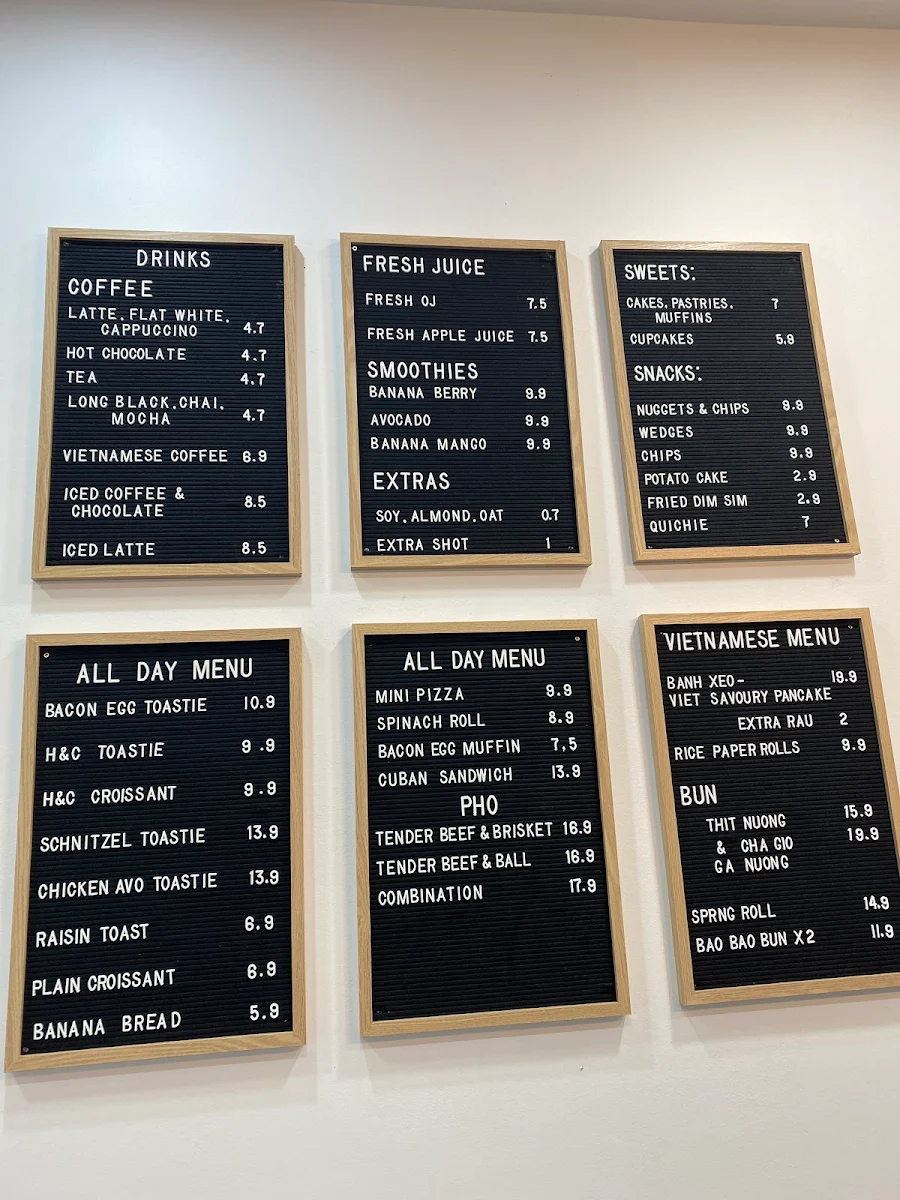 DRINKS
COFFEE
LATTE, FLAT WHITE,
CAPPUCCINO 4.7
HOT CHOCOLATE 4.7
TEA 4.7
LONG BLACK, CHAI,
MOCHA 4.7
VIETNAMESE COFFEE 6.9
ICED COFFEE &
CHOCOLATE 8.5
ICED LATTE 8.5
FRESH JUICE
FRESH OJ 7.5
FRESH APPLE JUICE 7.5
SMOOTHIES
BANANA BERRY 9.9
AVOCADO 9.9
BANANA MANGO 9.9
EXTRAS
SOY, ALMOND, OAT 0.7
EXTRA SHOT 1
SWEETS:
CAKES, PASTRIES, 7
MUFFINS
CUPCAKES 5.9
SNACKS:
NUGGETS & CHIPS 9.9
WEDGES 9.9
CHIPS 9.9
POTATO CAKE 2.9
FRIED DIM SIM 2.9
QUICHIE 7
ALL DAY MENU
BACON EGG TOASTIE 10.9
H&C TOASTIE 9.9
H&C CROISSANT 9.9
SCHNITZEL TOASTIE 13.9
CHICKEN AVO TOASTIE 13.9
RAISIN TOAST 6.9
PLAIN CROISSANT 6.9
BANANA BREAD 5.9
ALL DAY MENU
MINI PIZZA 9.9
SPINACH ROLL 8.9
BACON EGG MUFFIN 7,5
CUBAN SANDWICH 13.9
PHO
TENDER BEEF & BRISKET 16.9
TENDER BEEF & BALL 16.9
COMBINATION 17.9
VIETNAMESE MENU
BANH XEO- 19.9
VIET SAVOURY PANCAKE
EXTRA RAU 2
RICE PAPER ROLLS 9.9
BUN
THIT NUONG 15.9
& CHA GIO 19.9
GA NUONG
SPRNG ROLL 14.9
BAO BAO BUN X2 11.9